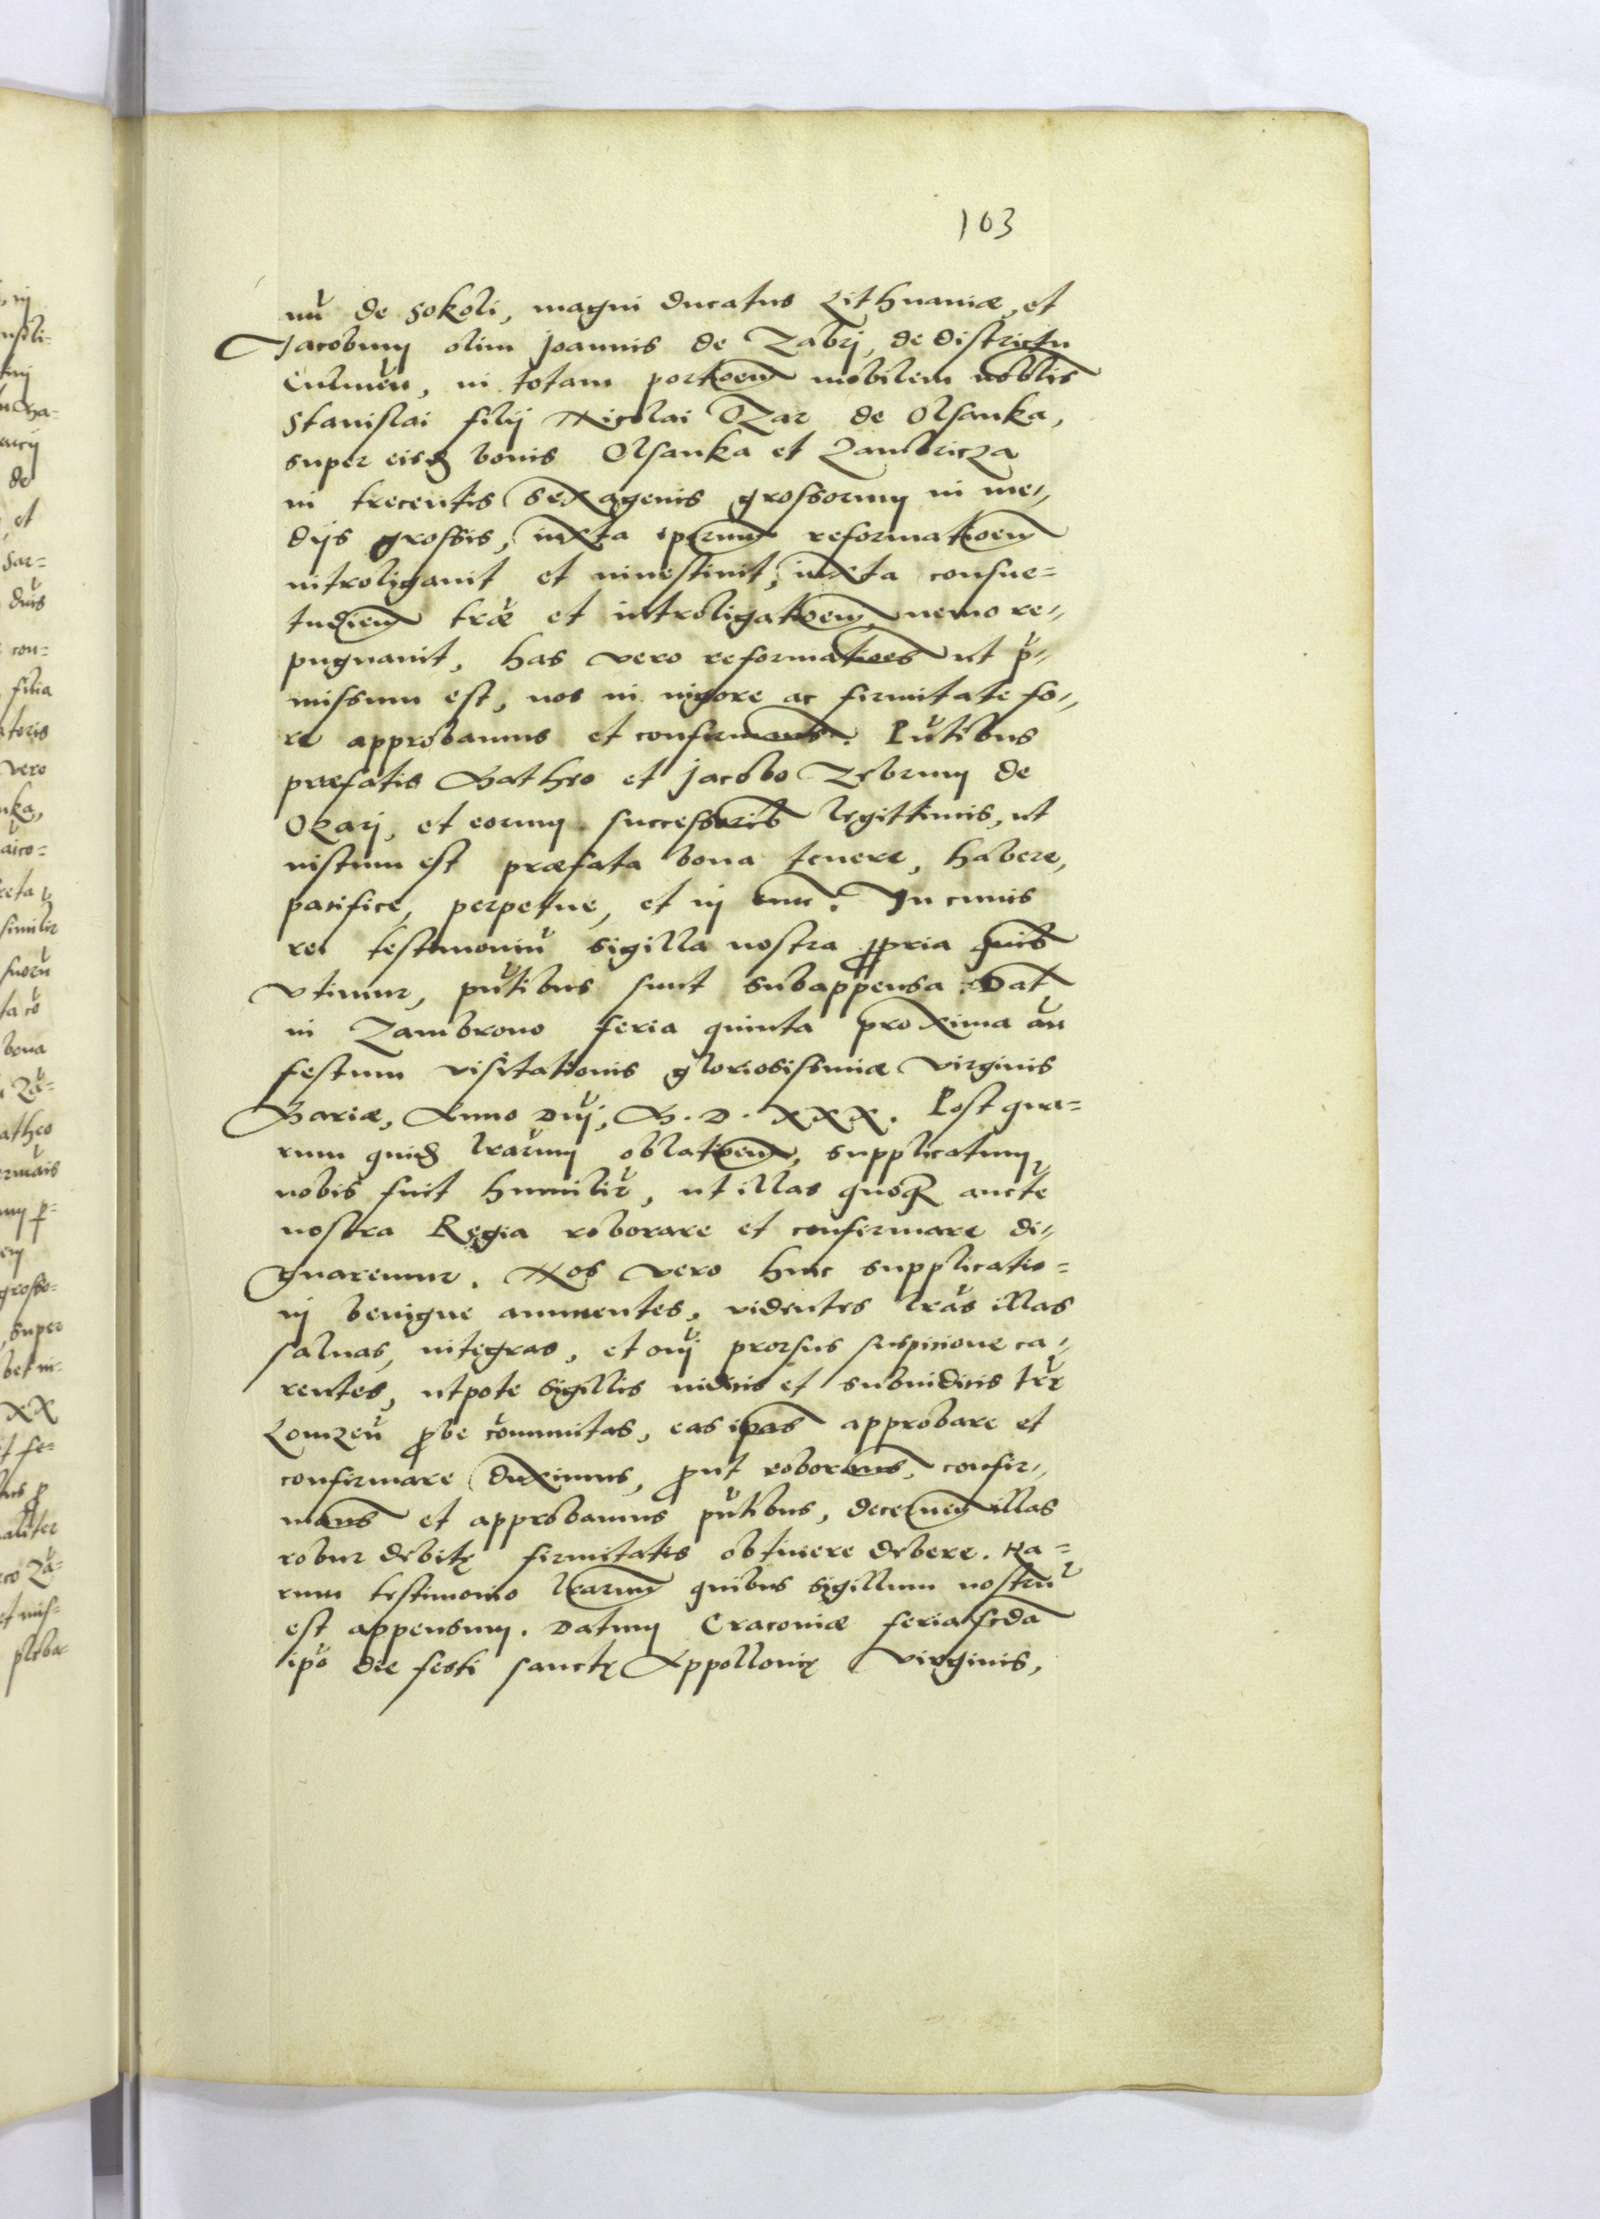 103
nū de Sokoli, magni ducatus Lithuaniæ, et
Jacobum olim Joannis de Zabrj, de districtu
Culmēn, in totam portioem mobilem noblis
Stanislai filij Nicolai Ozar de Olsanka,
super eisd bonis Olsanka et Zambricza
in trecentis sexagenis grossorum in me-
dijs grossis, iuxta iparum reformatioem
introligauit et inuestiuit, iuxta consue-
tudiem træ et introligatioem, nemo re-
pugnauit, has vero reformatioes ut p-
missum est, nos in uigore ac firmitate fo-
re approbamus et confirmams. Pntibus
præfatis Matheo et Jacobo Zebrum de
Okarj, et eorum successorib legittimis, ut
uistum est præfata bona tenere, habere,
pacifice, perpetue, et in euu. In cuius
rei testimoniū sigilla nostra ppria quib
vtimur, pntibus sunt subappensa. Dat
in Zambrono feria quinta proxima an
festum visitationis gloriosissimæ virginis
Mariæ, Anno Dnj, M. D. XXX. Post qua=
rum quid lrarum oblatioem, supplicatum
nobis fuit humilir, ut illas quoq aucte
nostra Regia roborare et confirmare di-
gnaremur. Nos vero huic supplicatio=
nj benigne annuentes, videntes lras illas
saluas, integras, et onj prorsus suspicione ca-
rentes, utpote sigillis iudicis et subiudicis trr
Lomzen pbe communitas, eas ipas approbare et
confirmare duximus, put roboramus, confir-
mams et approbamus pntibus, decernen illas
robur debitę firmitatis obtinere debere. Ha=
rum testimonio lrarum quibus sigillum nostrū
est appensum. Datum Cracouiæ feria scda
ipo die festi sanctę Appollonię virginis,